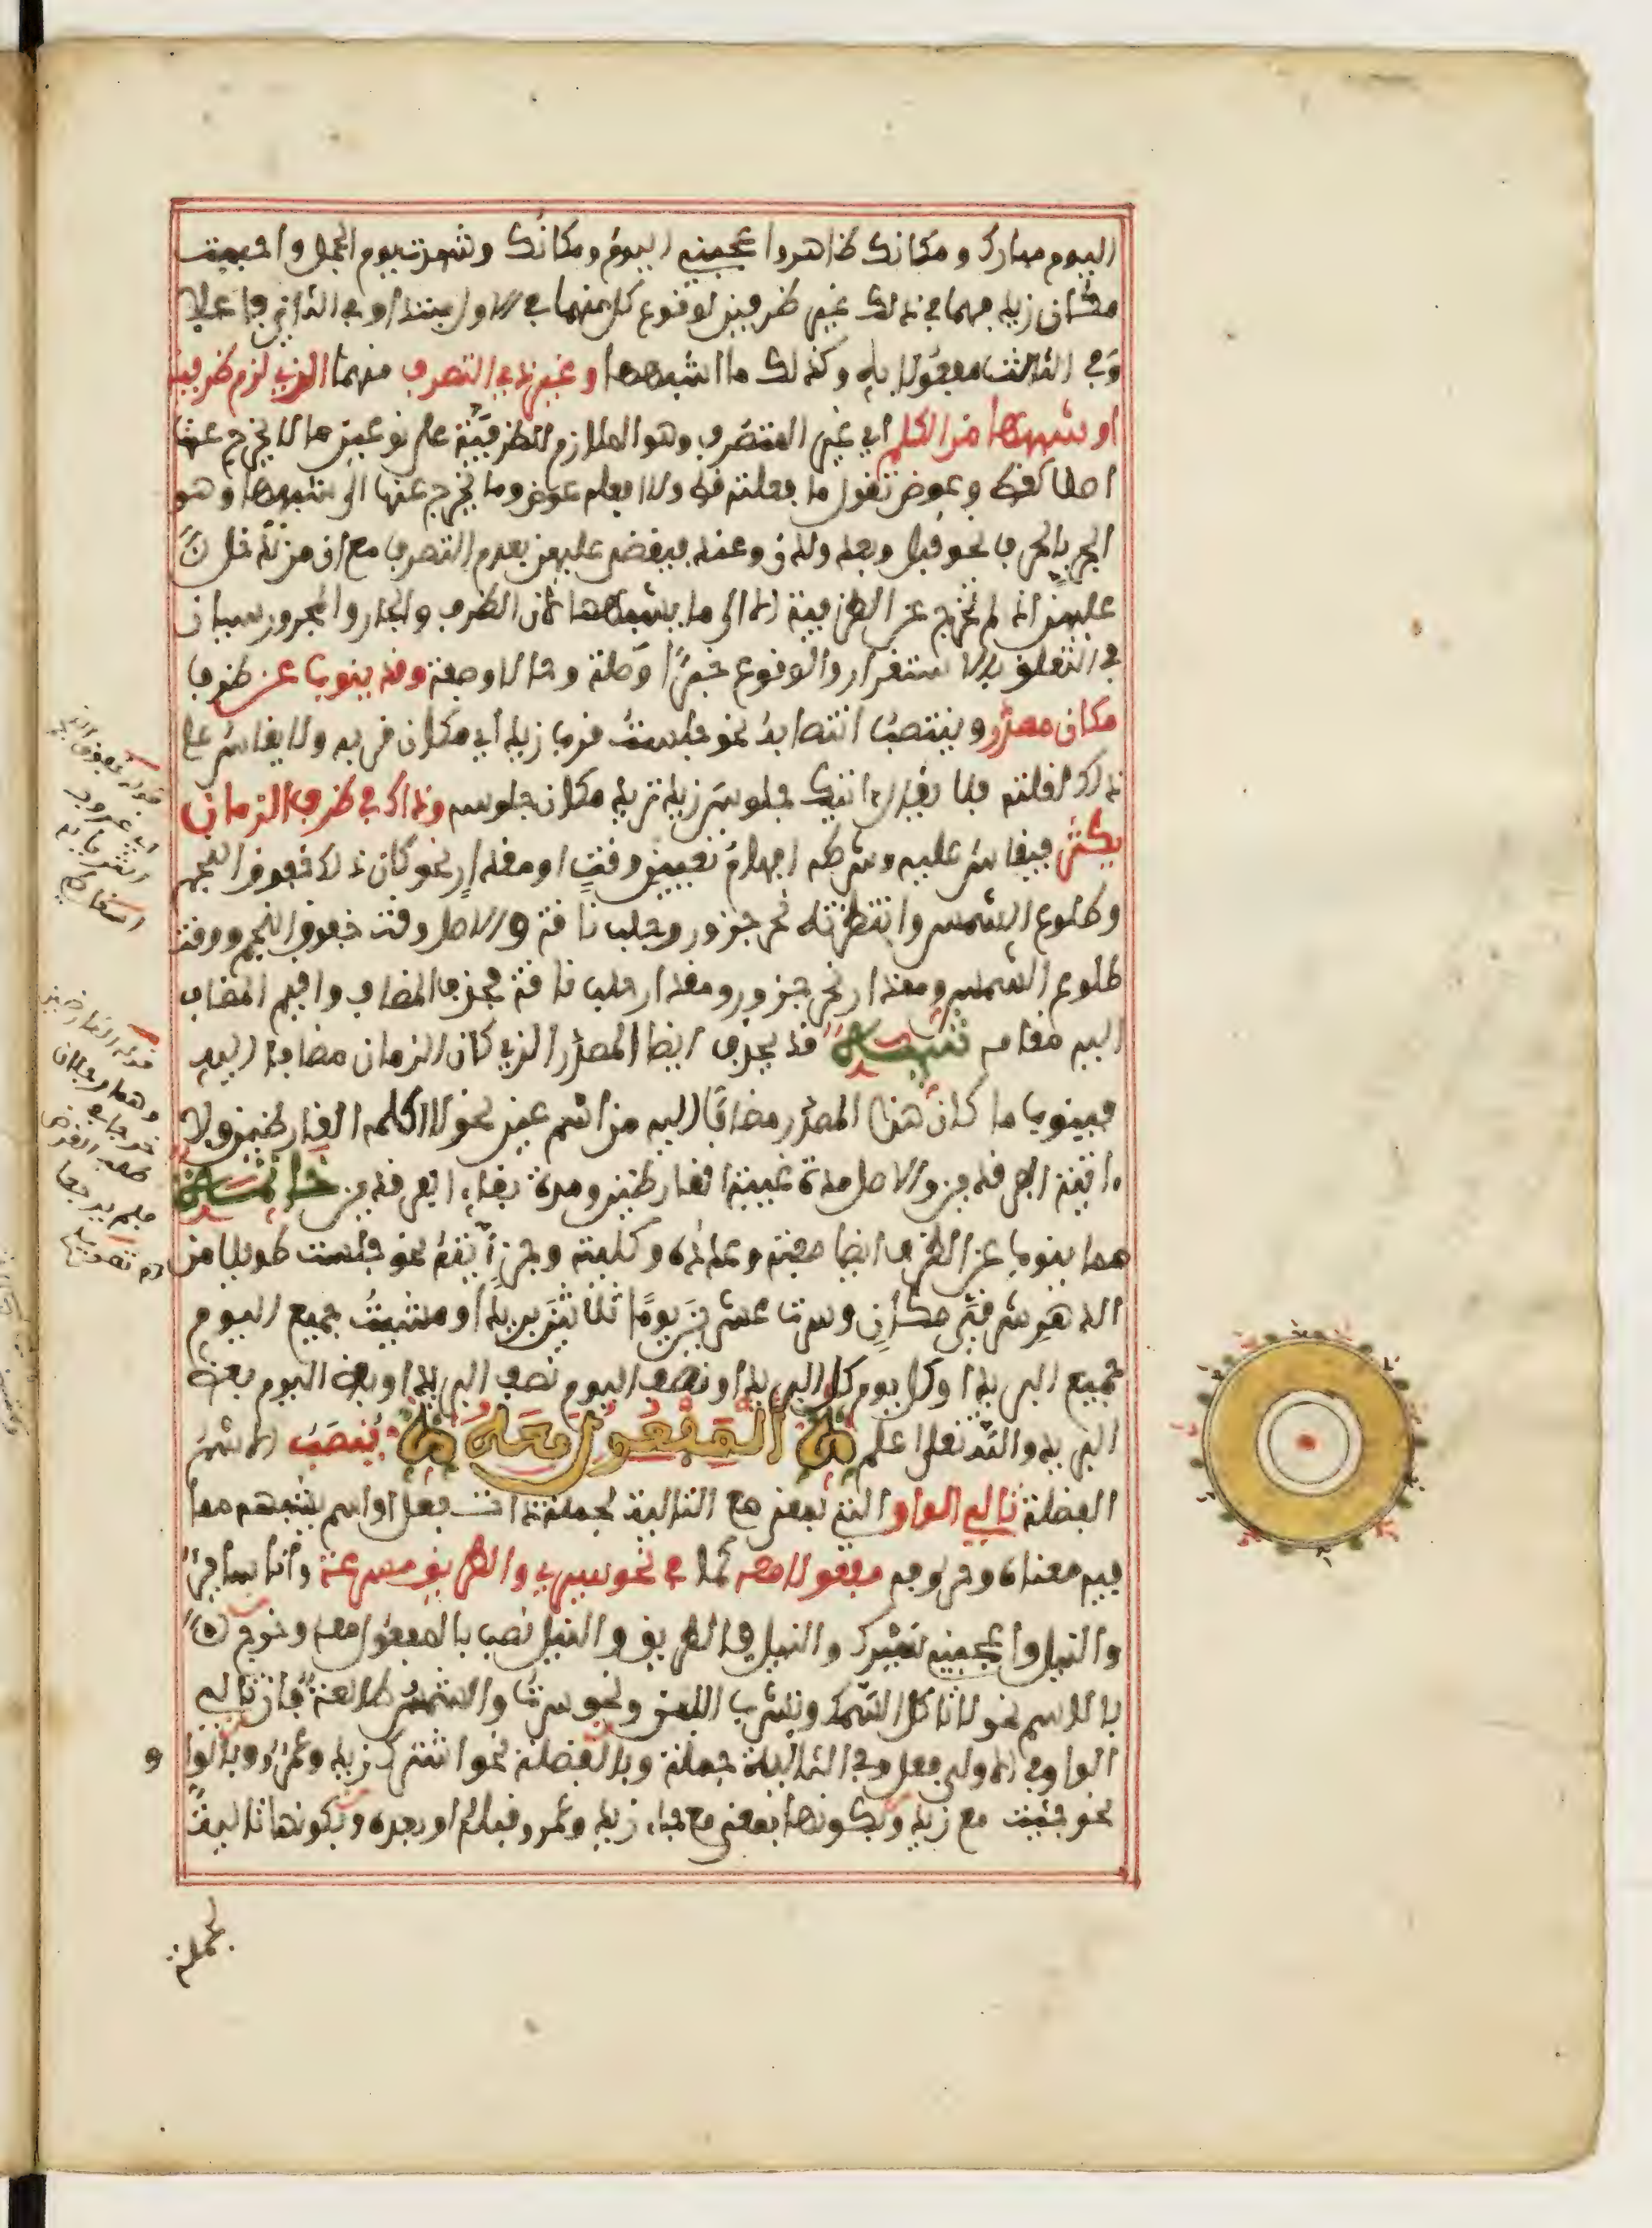 اليوم مبارك ومكانك طاهر واعجبني اليوم ومكانك وشهدت يوم الجمل واحببت
مكان زيد فهما في ذلك غير ظرفين لوقوع كل منهما في الاول مبتدا وفي الثاني فاعلا
وفي الثالث مفعولا به وكذلك ما اشبهها وغير ذي التصرف منهما الذي لزم ظرفية
او شبهها من الكلم اي غير المتصرف وهو الملازم للظرفية على نوعين ما لا يخرج عنها
اصلا كقط وعوض تقول ما فعلته قط ولا افعله عوض وما يخرج عنها الى شبهها وهو
الجر بالحرف نحو قبل وبعد ولدن وعند فيقضى عليهن بعدم التصرف مع ان من تدخل
عليهن اذ لم تخرج عن الظرفية الا الى ما يشبهها لان الظرف والجار والمجرور سيان
في التعلق بالاستقرار والوقوع خبرا وصلة وحالا وصفة وقد ينوب عن ظرف
مكان مصدر وينتصب انتصابه نحو جلست قرب زيد اي مكان قربه ولا يقاس على
ذلك لقلته فلا يقال اتيك جلوس زيد تريد مكان جلوسه وذاك في ظرف الزمان
يكثر فيقاس عليه وشرطه افهام تعيين وقت او مقدار نحو كان ذلك خفوق النجم
وطلوع الشمس وانتظرته نحر جزور وحلب ناقة والاصل وقت خفوق النجم ووقت
طلوع الشمس ومقدار نحر جزور ومقدار حلب ناقة فحذف المضاف واقيم المضاف
اليه مقامه تنبيه قد يحذف ايضا المصدر الذي كان الزمان مضافا اليه
فينوب ما كان هذا المصدر مضافا اليه من اسم عين نحو لا اكلمه القارظين ولا
اتيه الفرقدين والاصل مدة غيبة القارظين ومدة بقاء الفرقدين خاتمة
مما ينوب عن الظرف ايضا صفته وعدده وكليته وجزئيته نحو جلست طويلا من
الدهر شرقي مكان وسرت عشرين يوما ثلاثين بريدا ومشيت جميع اليوم
جميع البريد او كل يوم كل البريد او نصف اليوم نصف البريد او بعض اليوم بعض
البريد والله تعلى اعلم المفعول معه ينصب الاسم
الفضلة تالي الواو التي بمعنى مع التالية لجملة ذات فعل او اسم يشبهه مما
فيه معناه وحروفه مفعولا معه كما في نحو سيري والطريق مسرعه وانا سائر
والنيل واعجبني سيرك والنيل فالطريق والنيل نصب بالمفعول معه وخرج
بالاسم نحو لا تاكل السمك وتشرب اللبن ونحو سرت والشمس طالعة فان تالي
الواو في الاولى فعل وفي الثانية جملة وبالفضلة نحو اشترك زيد وعمرو وبالواو
نحو جئت مع زيد وبكونها بمعنى مع جاء زيد وعمرو قبله او بعده وبكونها تالية
لجملة